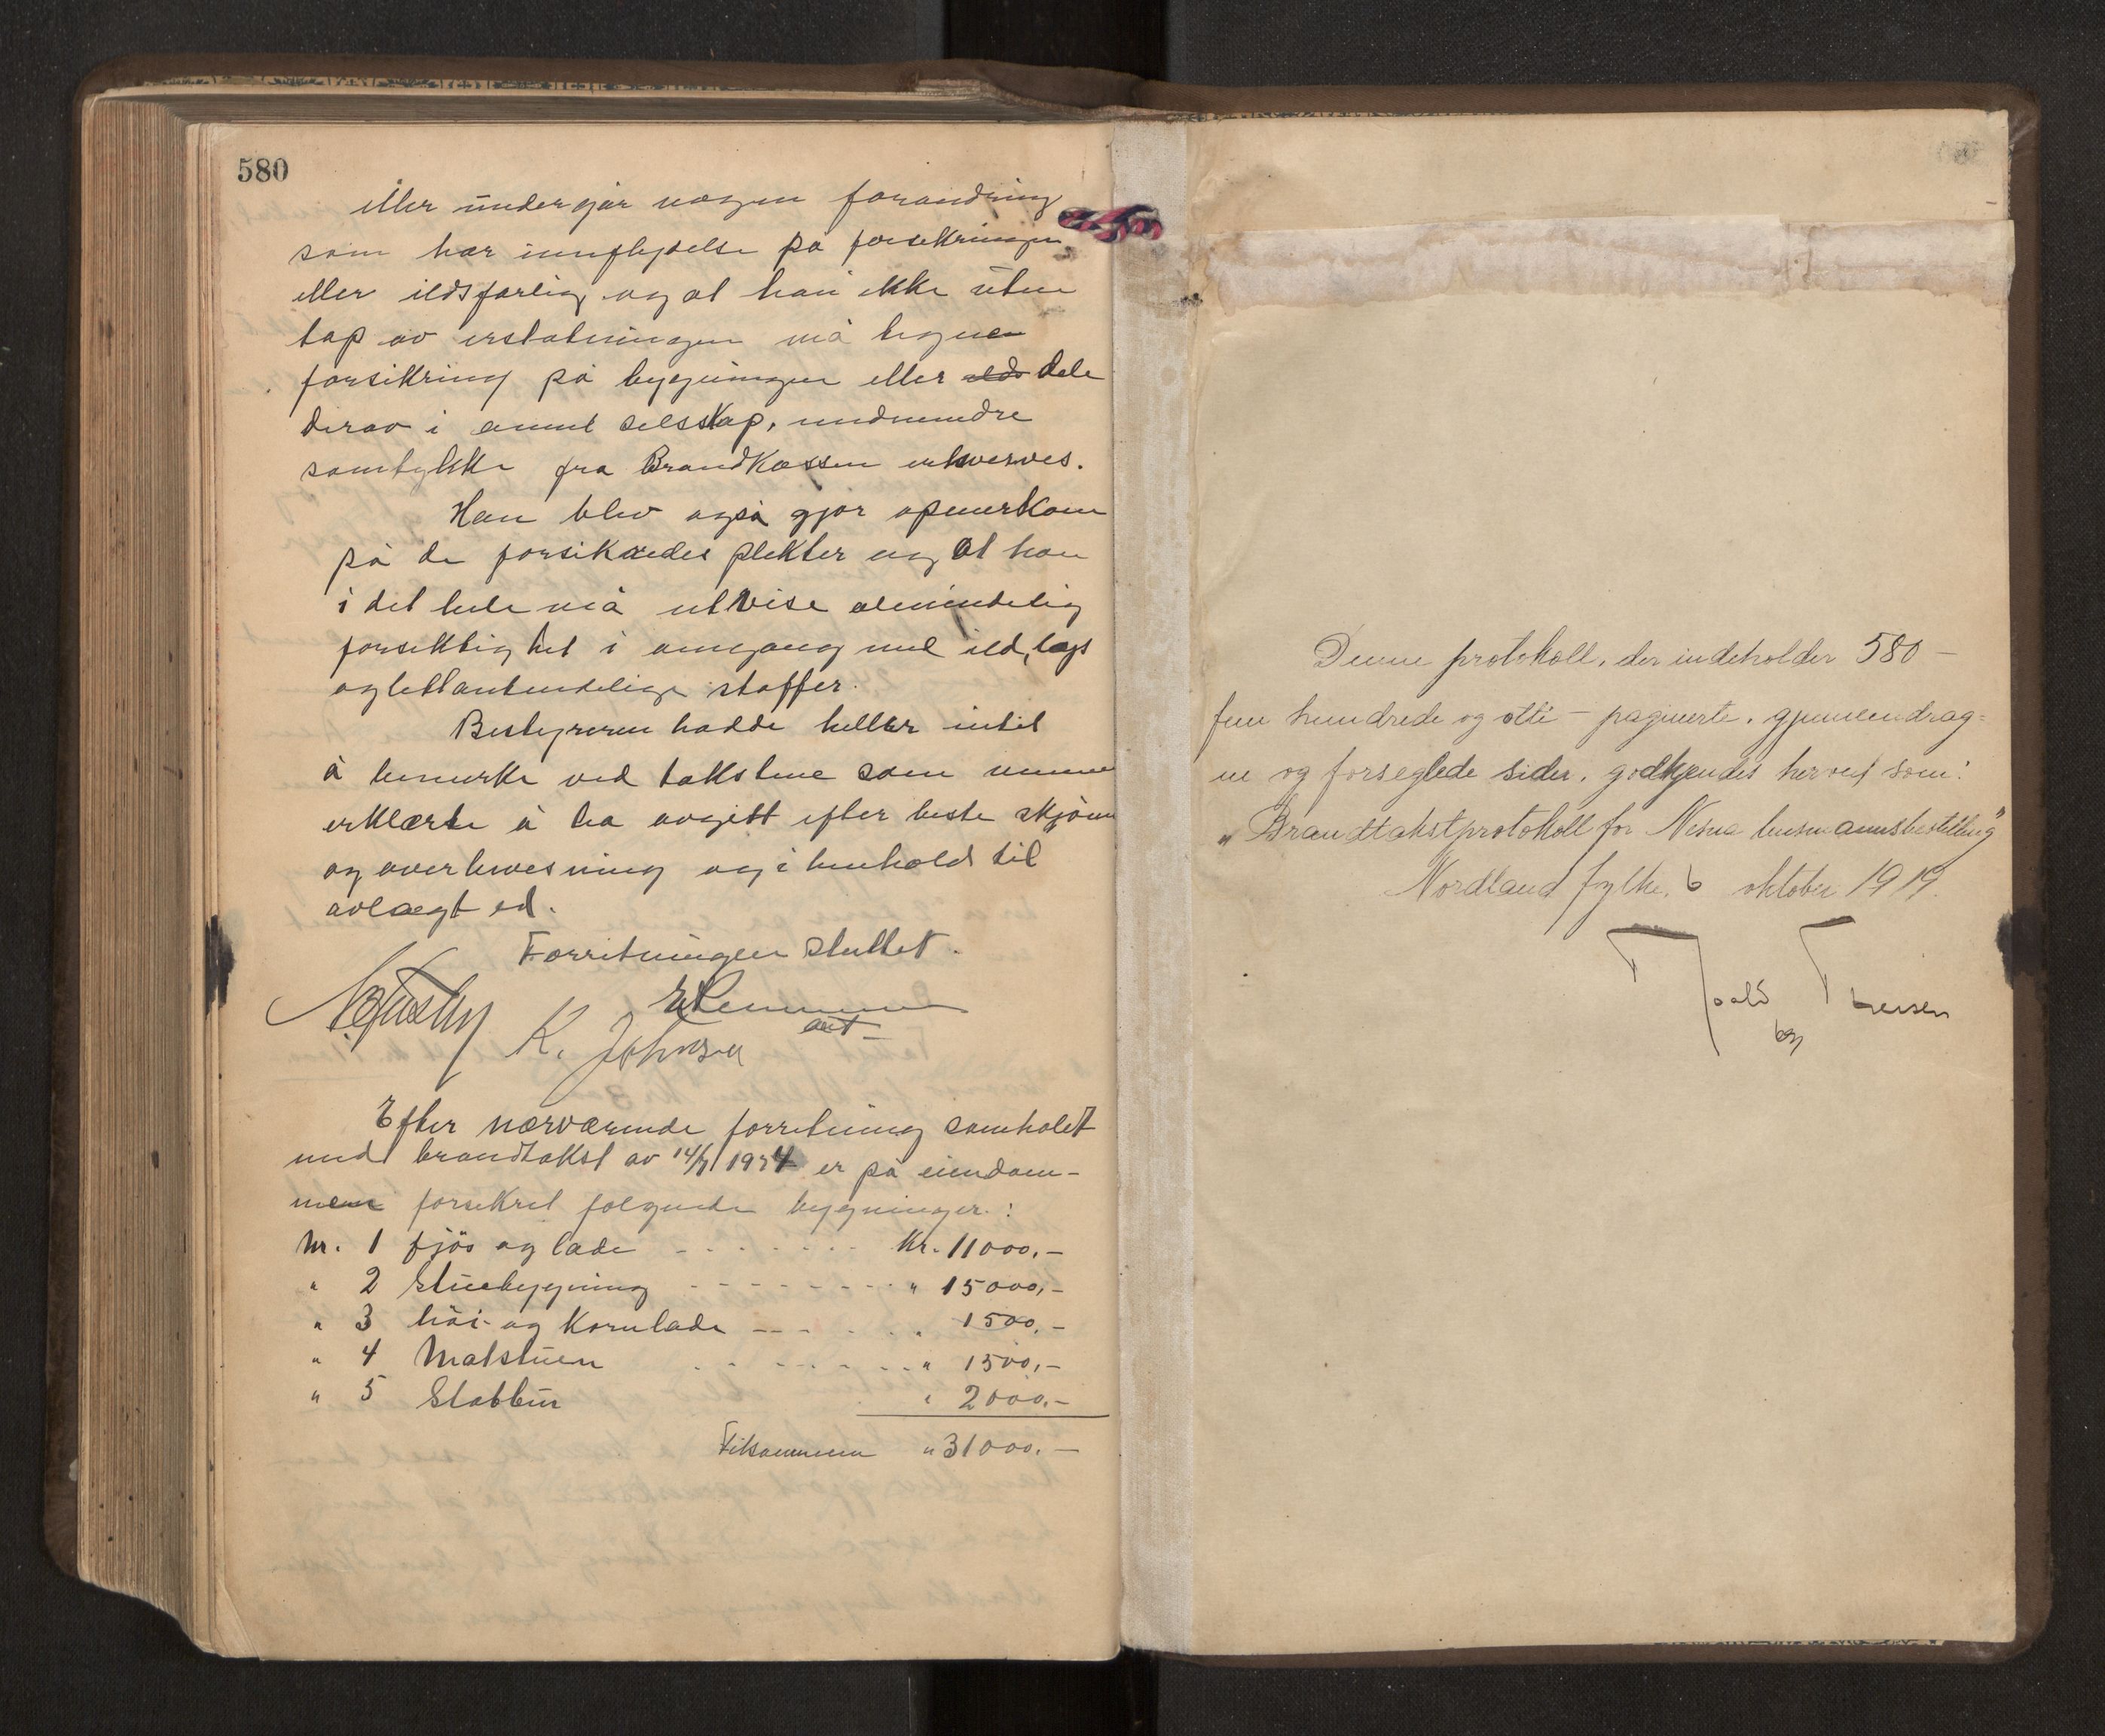 580
eller undergår nogen forandring
som har innflydelse på forsikringen
eller ildsfarlig og at han ikke uten
tap av erstatningen må tegne
forsikring på bygningen eller dele
derav i annet selsskap, medmindre
samtykke fra Brandkassen erhverves.
Han blev også gjor opmerksom
på de forsikredes plikter og at han
i det hele må utvise almindelig
forsiktighet i omgang med ild, lys
og lettantendelige stoffer.
Bestyreren hadde heller intet
å bemerke ved takstene som mennene
erklærte å ha avgitt efter beste skjönn
og overbevisning og i henhold til
avlagt ed.
Forretningen sluttet.
K. Johnsen
Efter nærværende forretning samholdt
med brandtakst av 14/7 1924 er på eiendom-
men forsikret følgende bygninger:
Nr. 1 fjös og lade - - - - - - - Kr. 11000.-
" 2 Stuebygning - - - - - - - - - " 15000,-
" 3 höi- og Kornlade - - - - - - " 1500.-
" 4 Matstuen - - - - - - - - " 1500,-
" 5 Stabbur " 2000.-
Tilsammen " 31000.-
Denne protokoll, der indeholder 580 -
fem hundrede og otti - paginerte, gjennemdrag=
ne og forseglede sider, godkjendes herved som:
"Brandtakstprotokoll for Nesna lensmannsbestilling"
Nordland fylke, 6 oktober 1919.